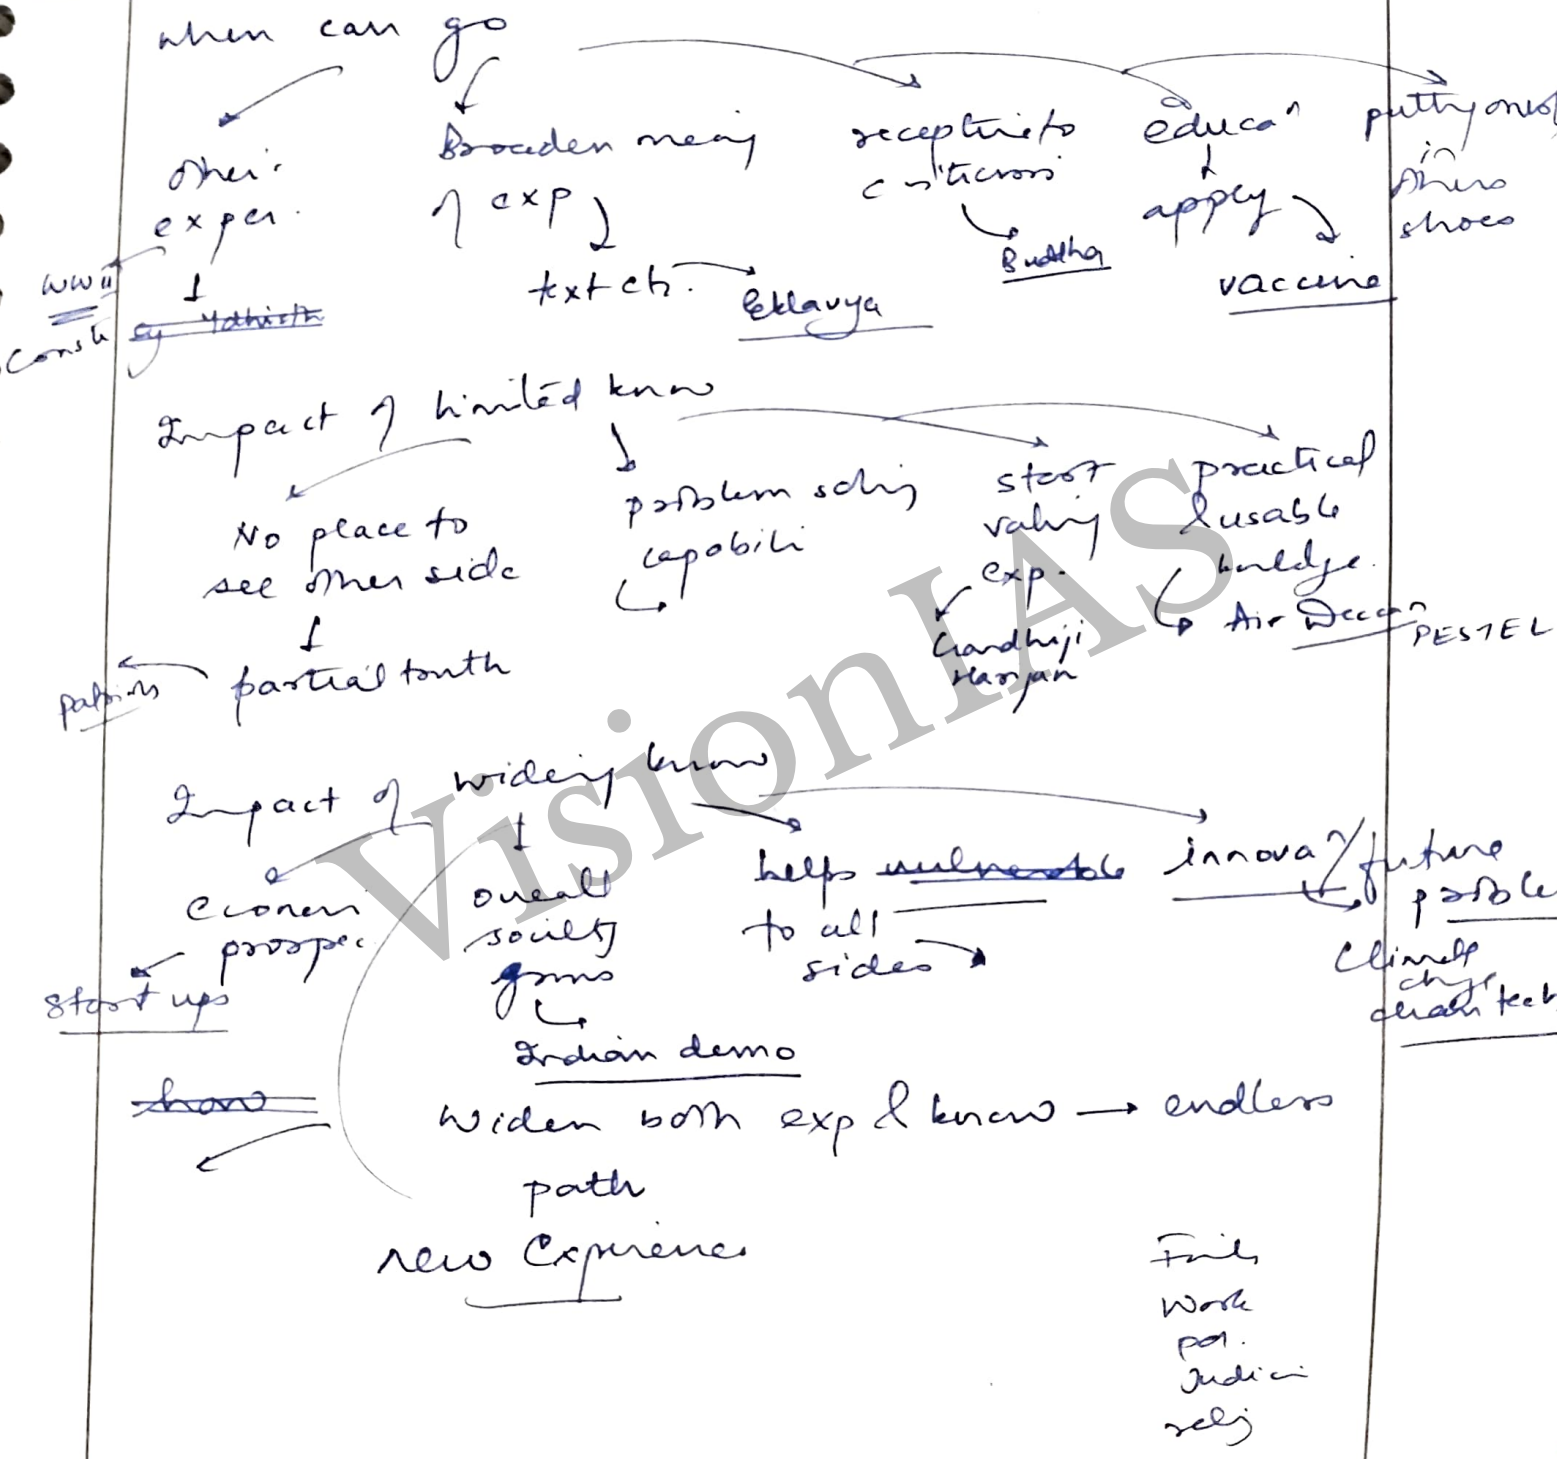 when can go
other
exper.
Broaden meaing
of exp
text ch.
Eklavya
receptive to
criticism
Buddha
educaⁿ
apply
vaccine
putting ones
in
others
shoes
WWII
Impact of limited know
No place to
see other side
partial truth
problem solvig
capabili
start
valuing
exp.
Gandhiji
Harijan
practical
& usable
knowledge.
Air Deccan
PESTEL
Impact of wideing know
Economi
prospec
start ups
overall
society
grows
Indian demo
helps
to all
sides
innovaⁿ/future
problem
Climate
chnge
clean tech
Widen both exp & know → endless
path
new Experience
Family
Work
pol.
Judici
relig
VisionIAS